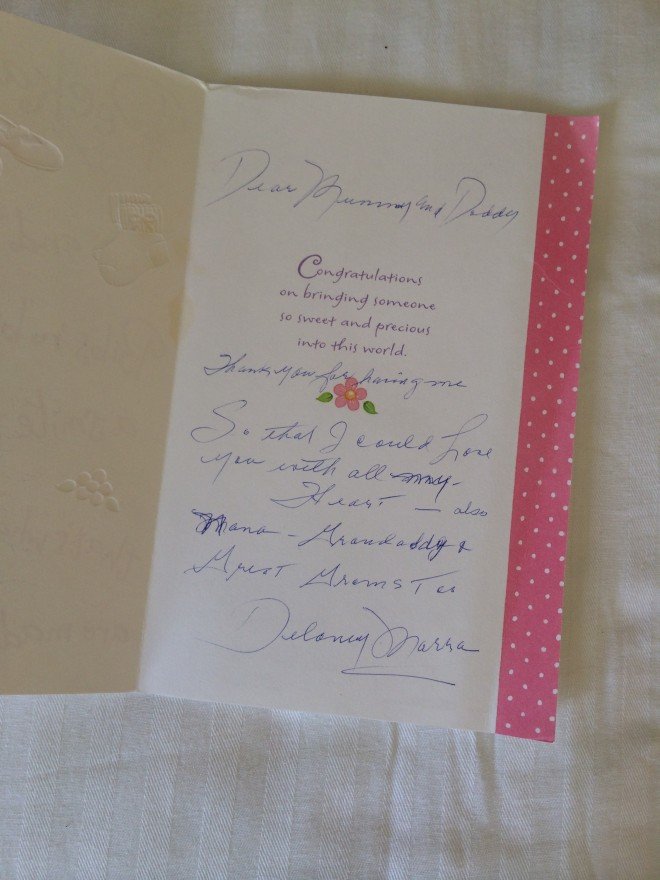 Dear Mummy and Daddy
Congratulations
on bringing someone
so sweet and precious
into this world.
Thank you for having me
So that I could Love
you with all my
Heart — also
Mana - Grandaddy &
Great Grams Too
Delaney